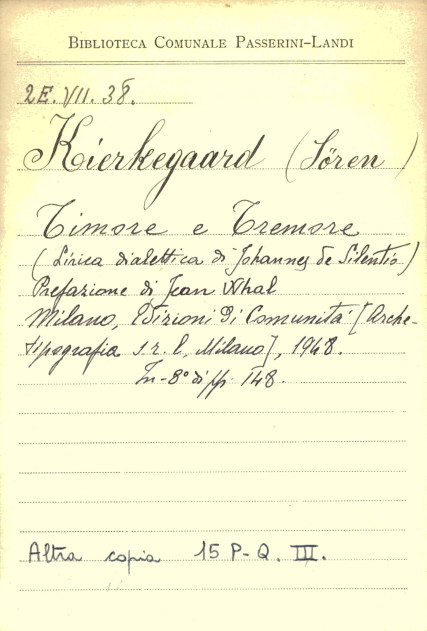 BIBLIOTECA COMUNALE PASSERINI-LANDI
2E. VII. 38.
Kierkegaard (Sören)
Timore e Tremore
(Lirica dialettica di Johannes de Silentio)
Prefazione di Jean Whal
Milano, Edizioni di Comunità [Arche-
tipografia s.r.l., Milano], 1948.
In-8° di pp. 148.
Altra copia 15 P-Q. III.